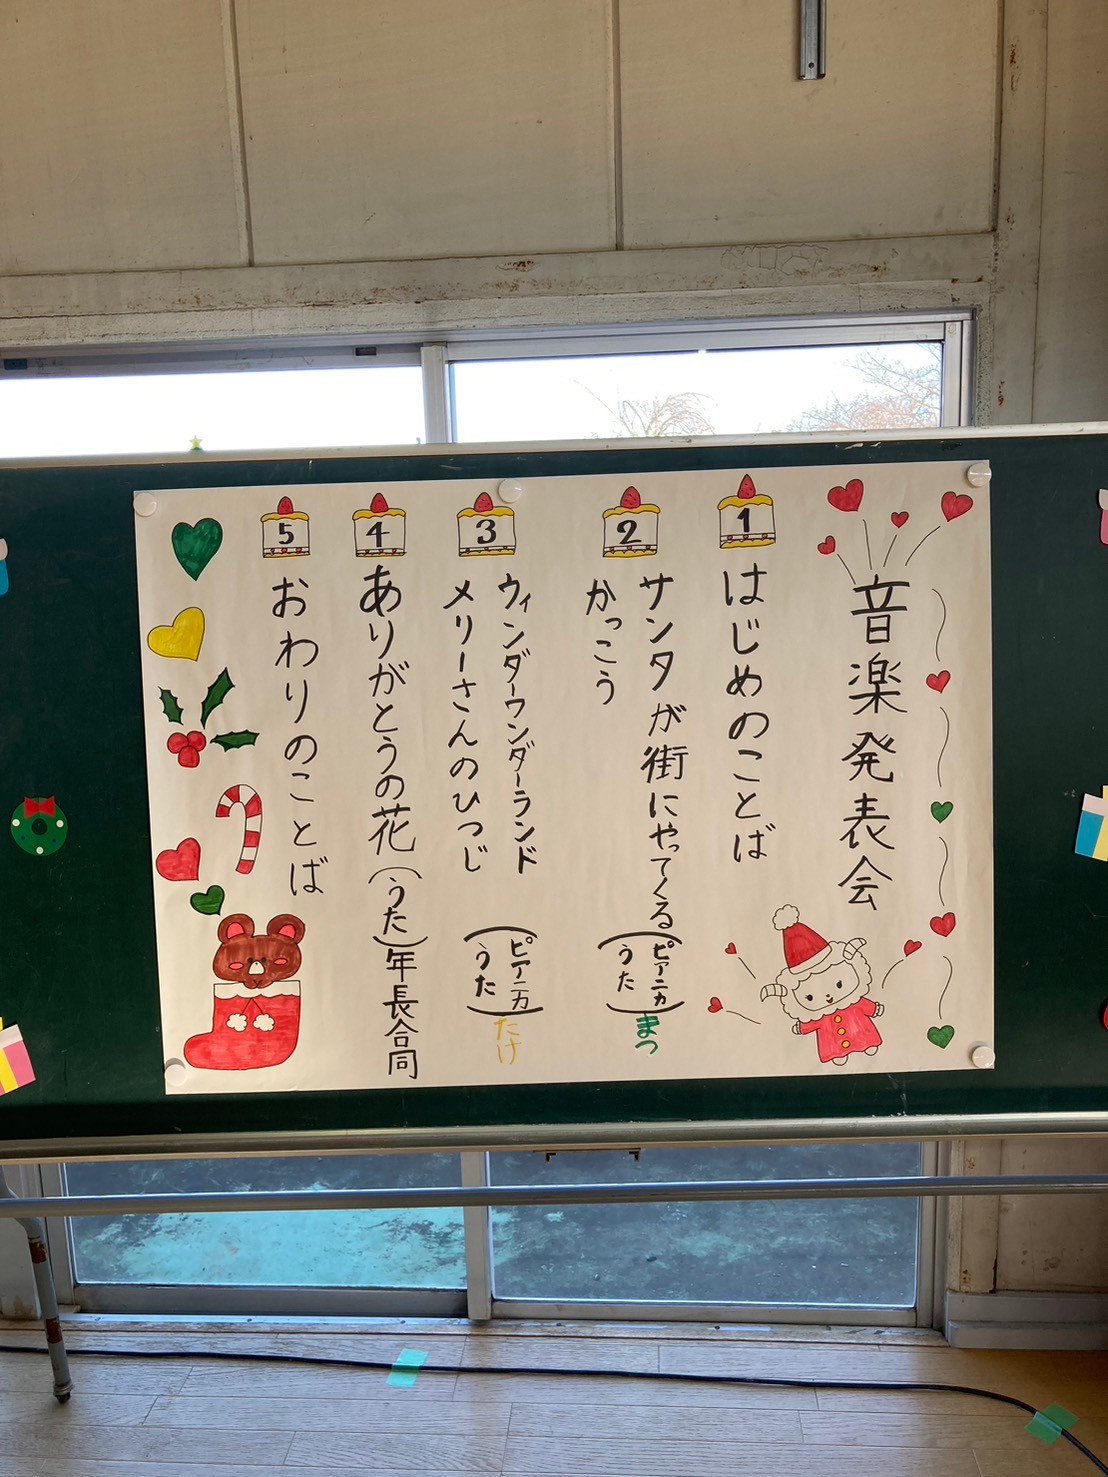 音楽発表会
1
はじめのことば
2
サンタが街にやってくる
かっこう
(ピアニカ
うた)
まつ
3
ウィンダーワンダーランド
メリーさんのひつじ
(ピアニカ
うた)
たけ
4
ありがとうの花(うた)年長合同
5
おわりのことば